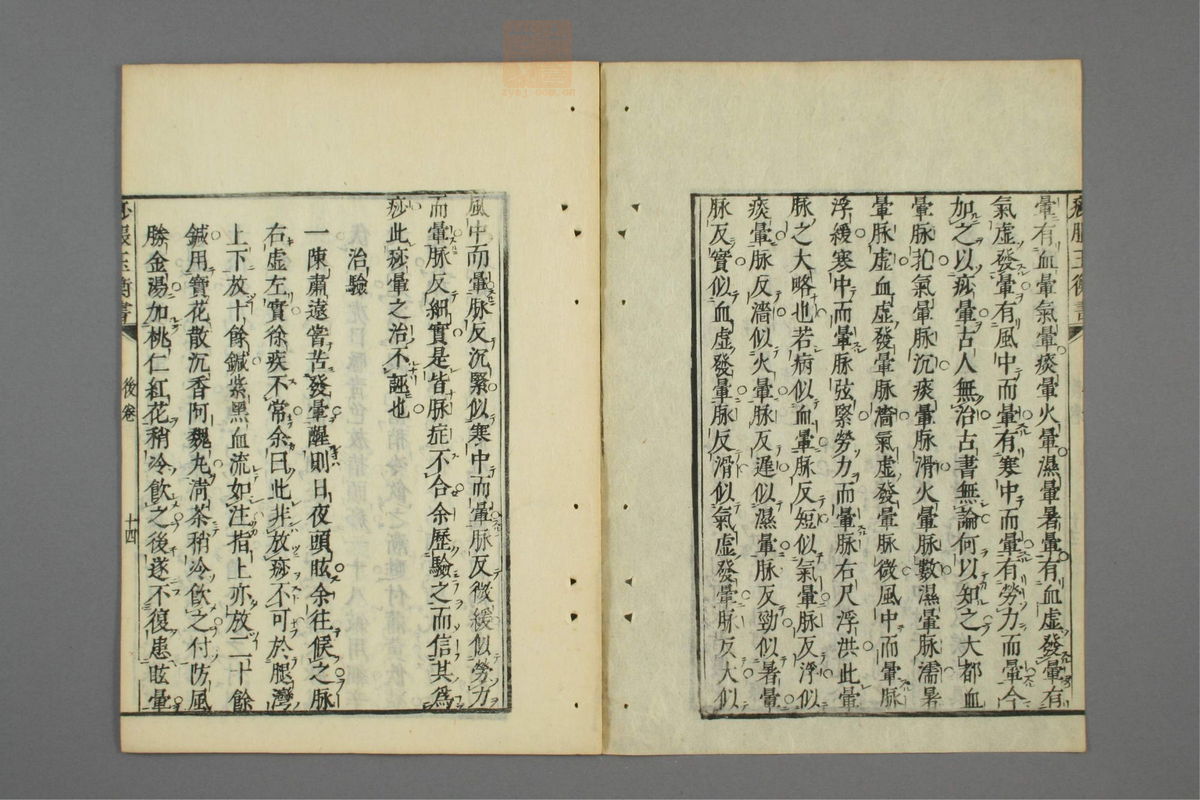 痧脹玉衡書
暈有血暈氣暈痰暈火暈濕暈暑暈有血虛發暈有
氣虛發暈有風中而暈有寒中而暈有勞力而暈今
加之以痧暈古人無治古書無論何以知之大都血
暈脉芤氣暈脉沉痰暈脉滑火暈脉數濕暈脉濡暑
暈脉虛血虛發暈脉濇氣虛發暈脉微風中而暈脉
浮緩寒中而暈脉弦緊勞力而暈脉右尺浮洪此暈
脉之大略也若病似血暈脉反短似氣暈脉反浮似
痰暈脉反濇似火暈脉反遲似濕暈脉反勁似暑暈
脉反實似血虛發暈脉反滑似氣虛發暈脉反大似
風中而暈脉反沉緊似寒中而暈脉反微緩似勞力
而暈脉反細實是皆脉症不合余歷驗之而信其爲
痧此痧暈之治不誣也
治驗
一陳肅遠嘗苦發暈醒則日夜頭眩余往候之脉
右虛左實徐疾不常余曰此非放痧不可於腿灣
上下放十餘鍼紫黑血流如注指上亦放二十餘
鍼用寶花散沉香阿魏丸淸茶稍冷飮之付防風
勝金湯加桃仁紅花稍冷飮之後遂不復患眩暈
痧脹玉衡書
後卷
十四
zysj.com.cn